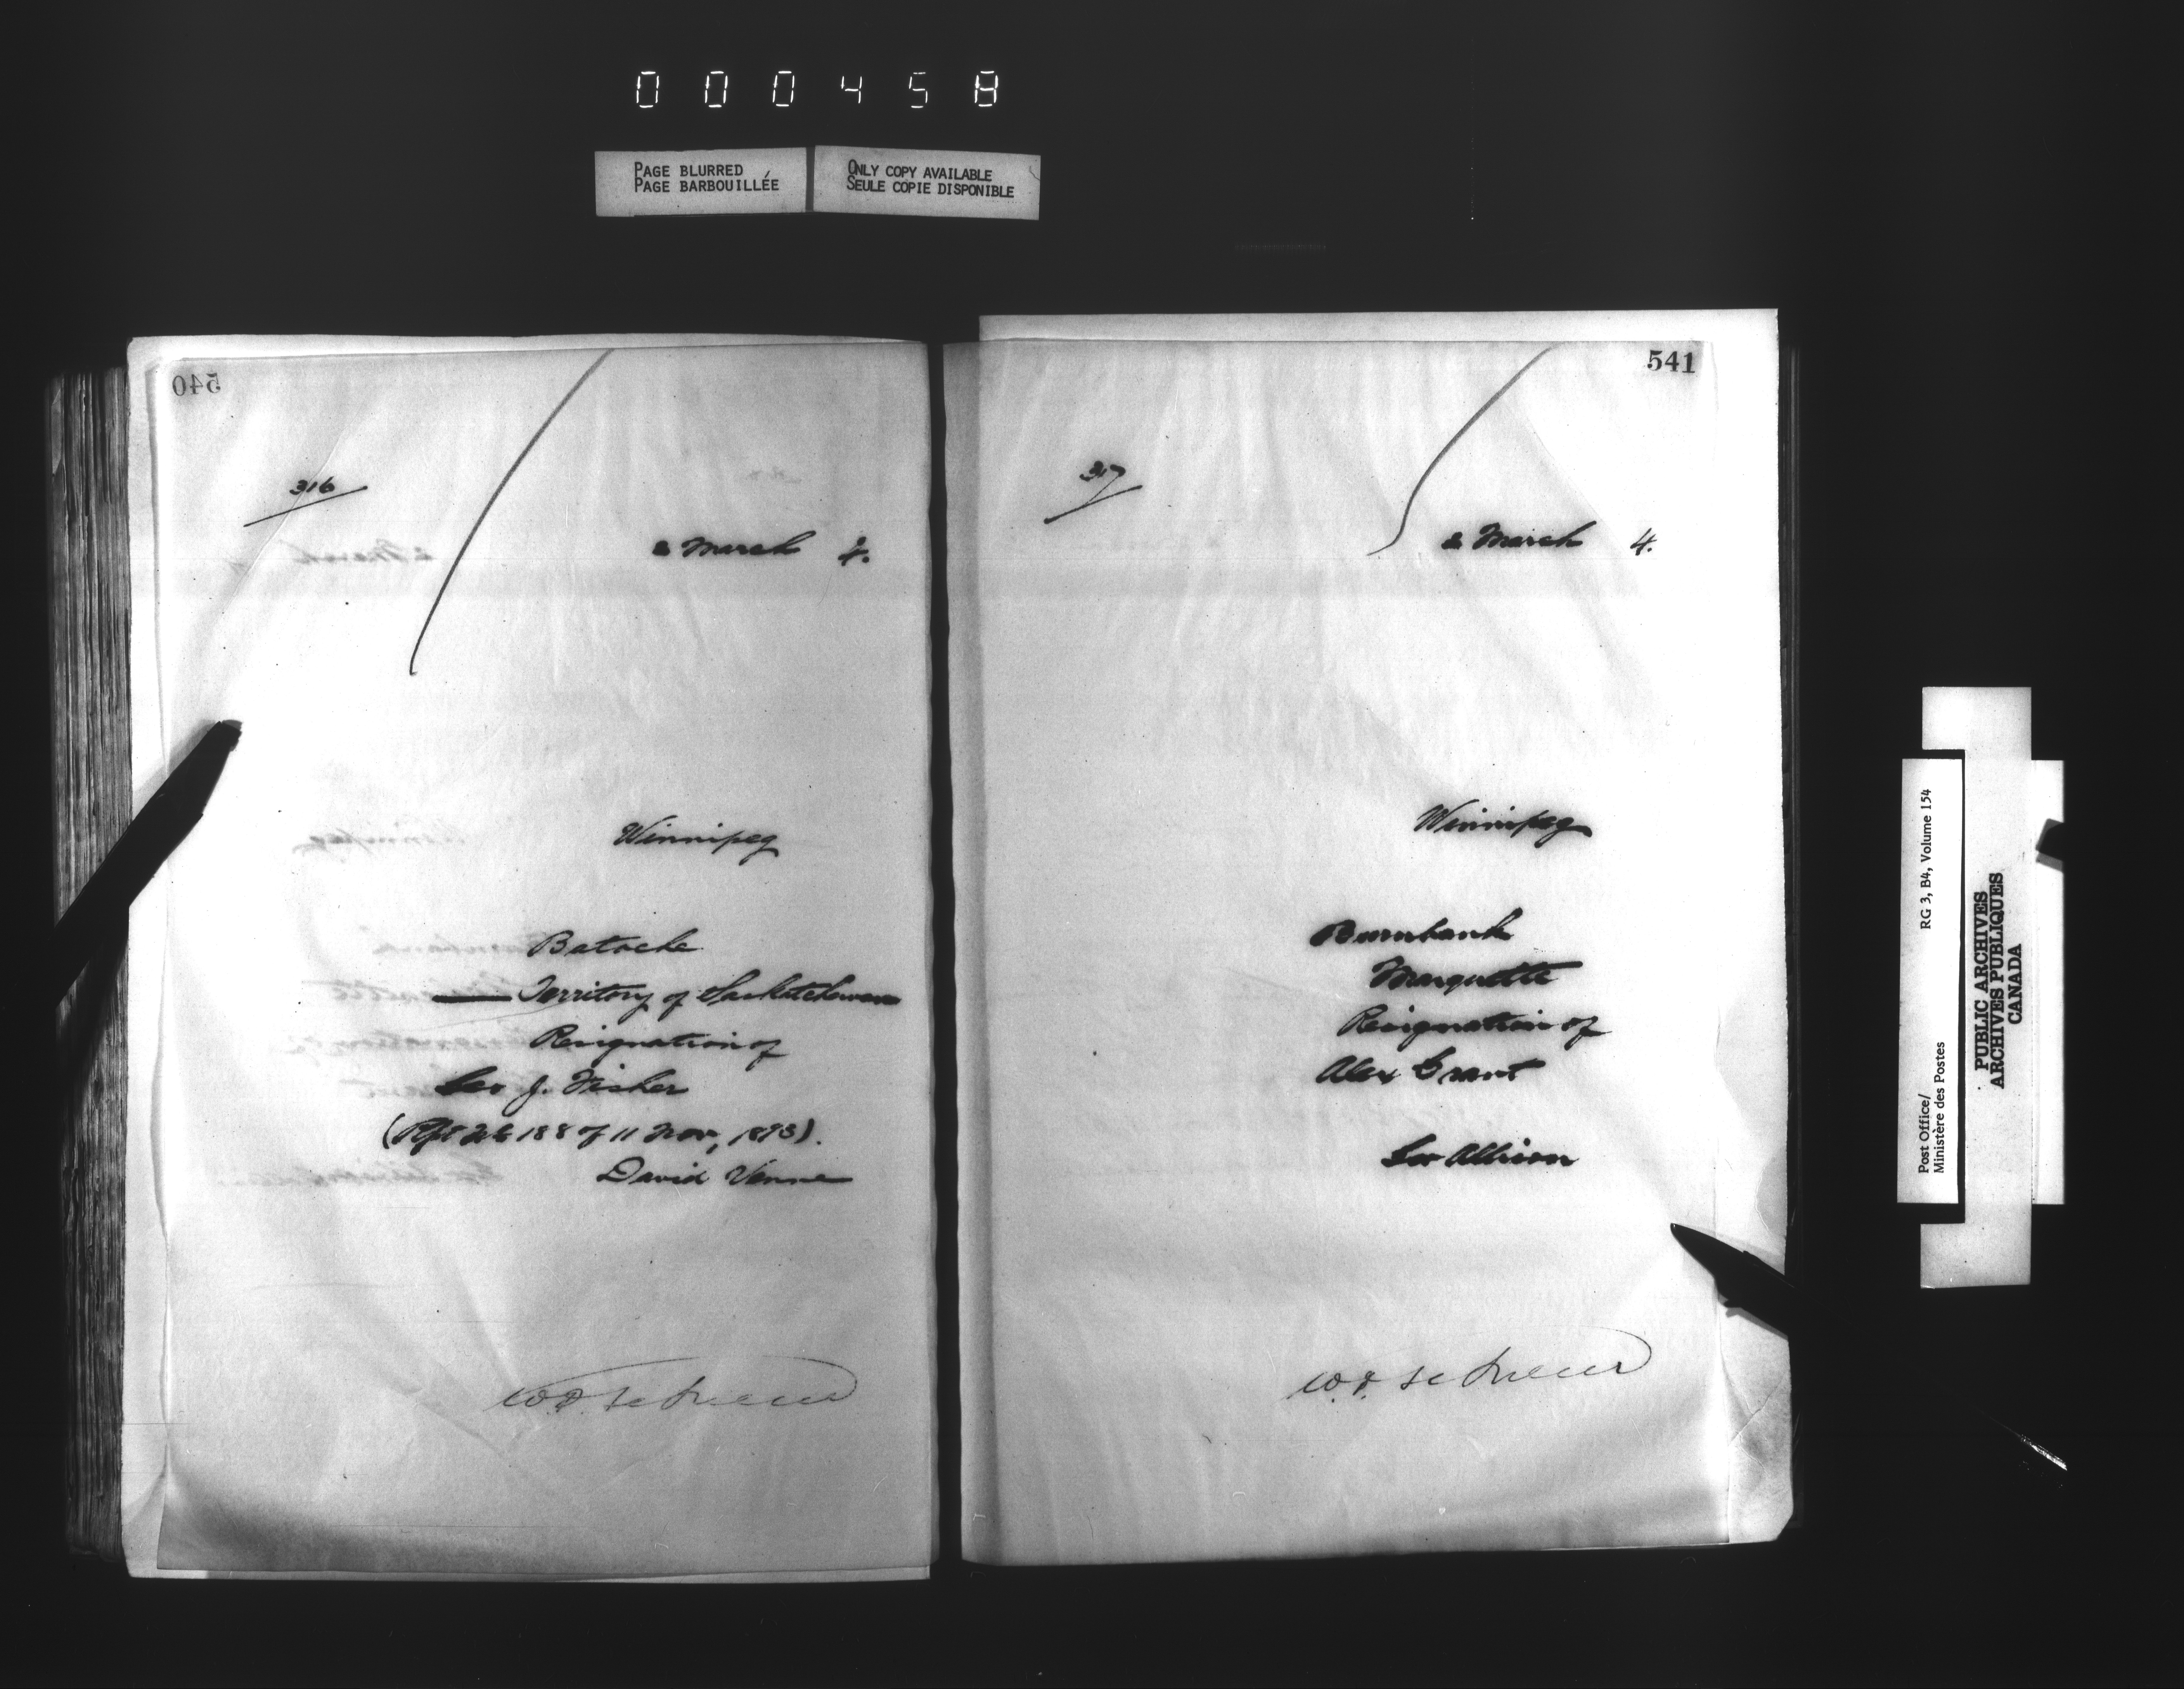 000458
PAGE BLURRED
PAGE BARBOUILLÉE
ONLY COPY AVAILABLE
SEULE COPIE DISPONIBLE
540
316
2 March 4.
Winnipeg
Batoche
Territory of Saskatchewan
Resignation of
Geo J. Fisher
188 of 11 Nov, 1893).
David Venne
541
317
2 March 4.
Winnipeg
Burnbank
Marquette
Resignation of
Alex Grant
Geo Allison
Post Office/ RG 3, B4, Volume 154
Ministère des Postes
PUBLIC ARCHIVES
ARCHIVES PUBLIQUES
CANADA